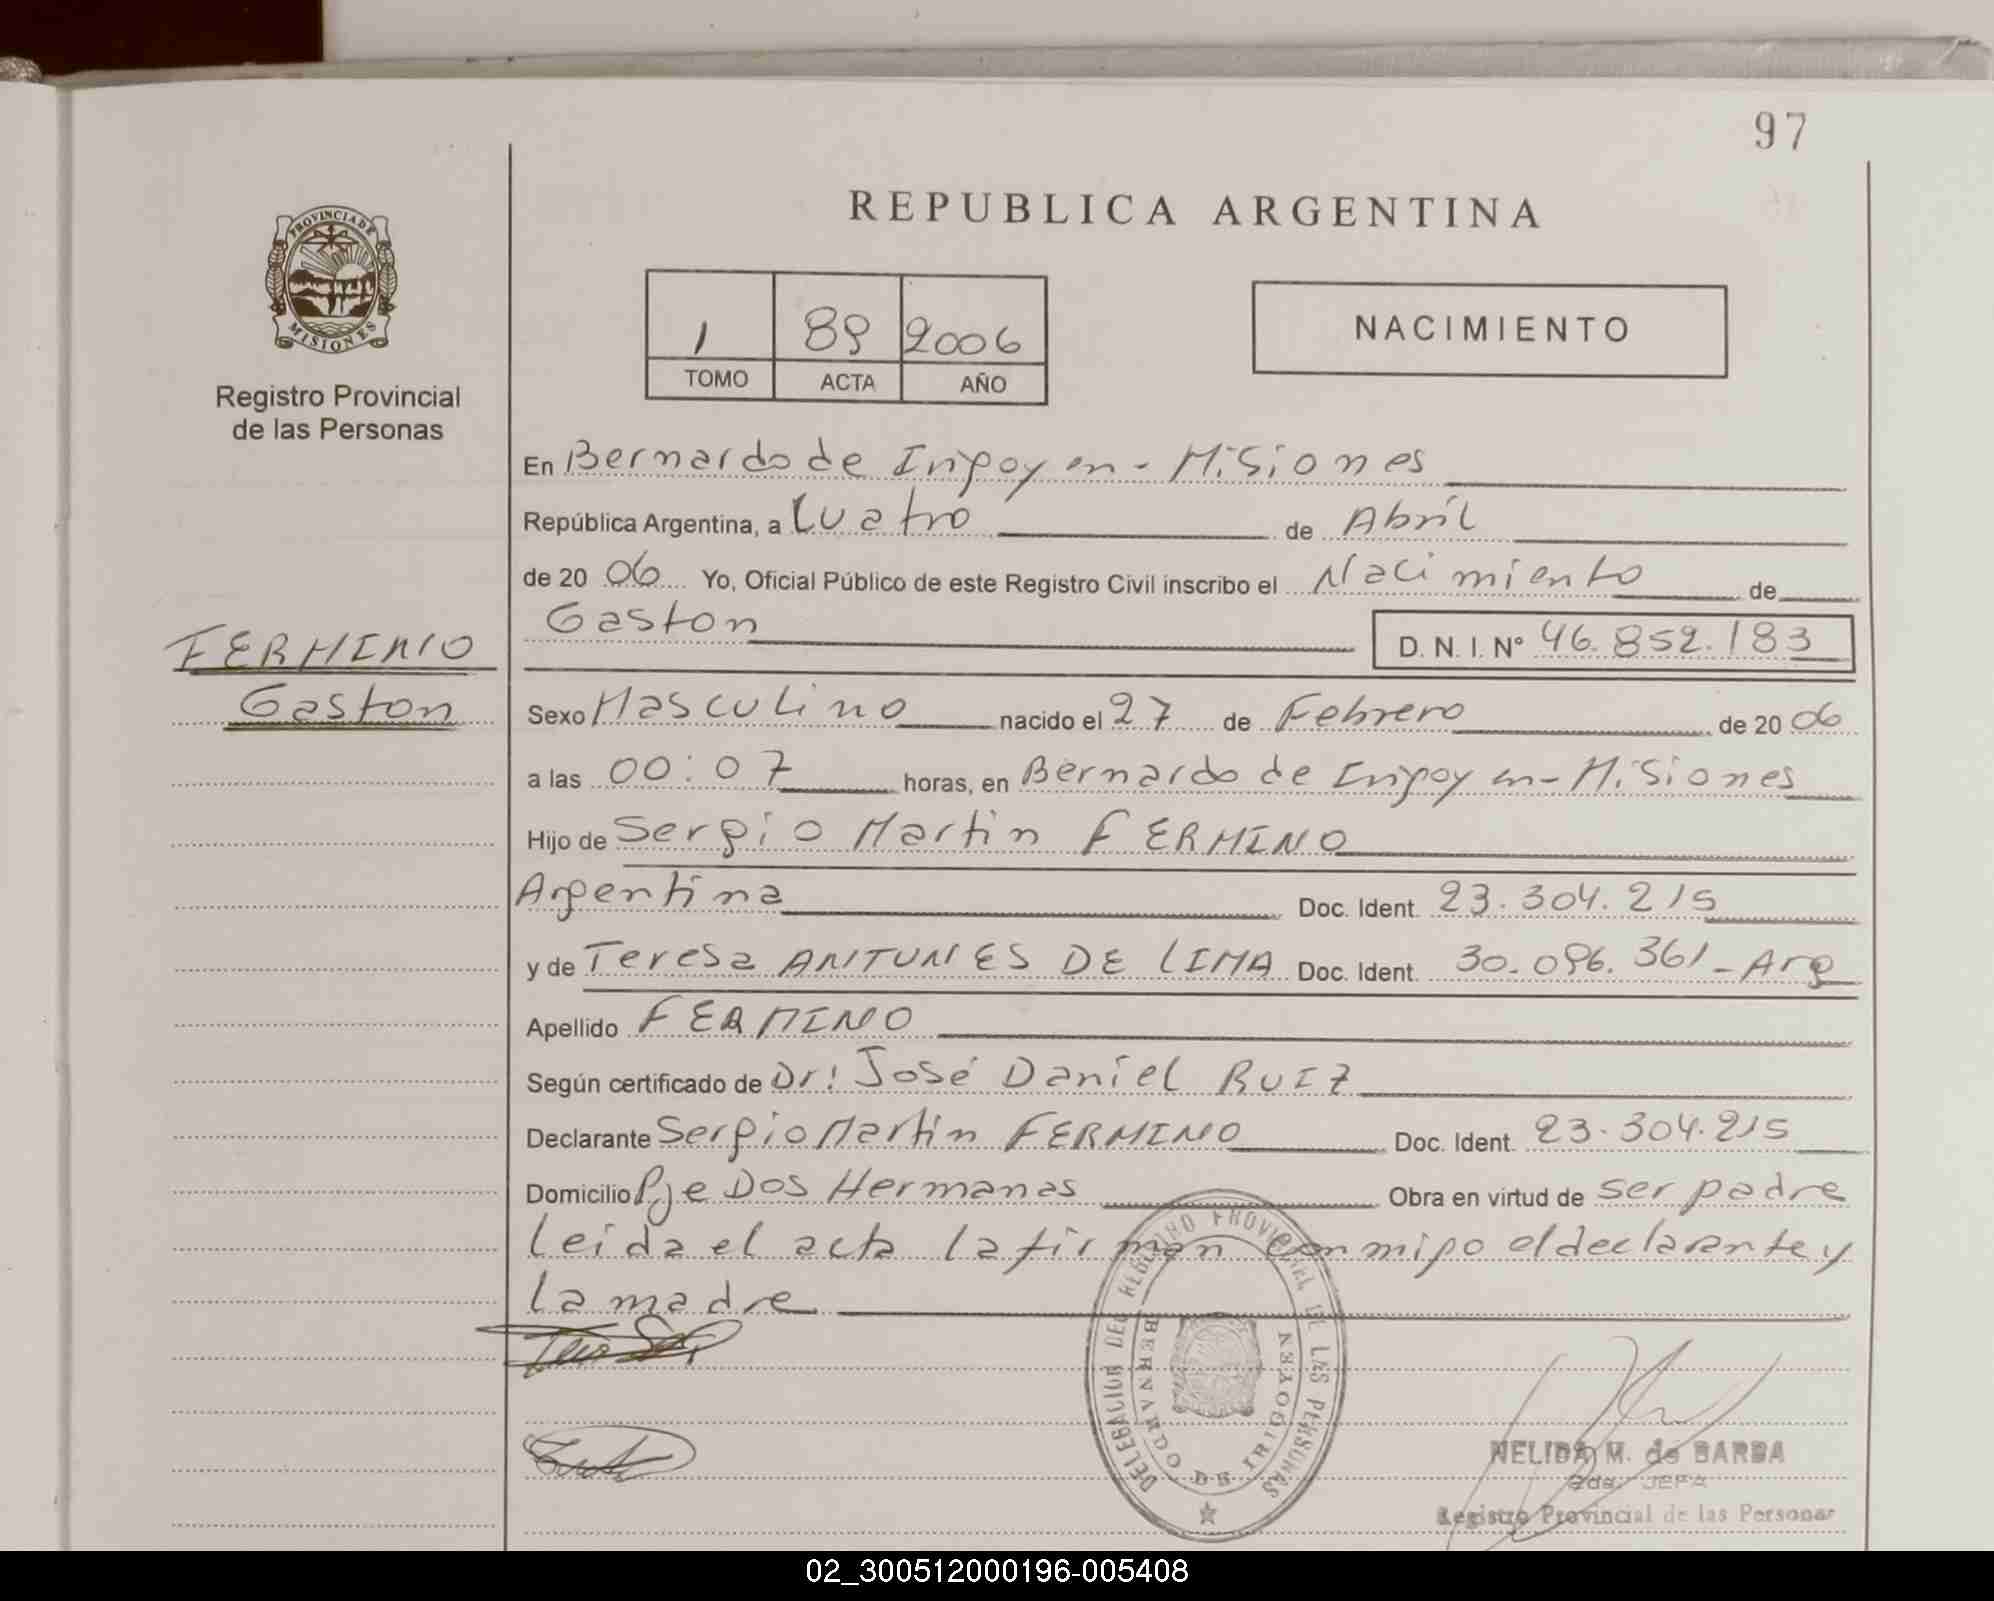 97
REPUBLICA ARGENTINA
PROVINCIA DE
MISIONES
Registro Provincial
de las Personas
1 89 2006
TOMO ACTA AÑO
NACIMIENTO
En Bernardo de Irigoyen - Misiones
República Argentina, a Cuatro de Abril
de 2006 Yo, Oficial Público de este Registro Civil inscribo el Nacimiento de
Gaston D. N. I. Nº 46.852.183
FERMINO
Gaston
Sexo Masculino nacido el 27 de Febrero de 2006
a las 00:07 horas, en Bernardo de Irigoyen - Misiones
Hijo de Sergio Martin FERMINO
Argentina Doc. Ident. 23.304.215
y de Teresa ANTUNES DE LIMA Doc. Ident. 30.096.361 - Arg
Apellido FERMINO
Según certificado de Dr: José Daniel RUIZ
Declarante Sergio Martin FERMINO Doc. Ident. 23.304.215
Domicilio Pje Dos Hermanas Obra en virtud de ser padre
leida el acta la firman conmigo el declarante y
la madre
DELEGACION DEL REGISTRO PROVINCIAL DE LAS PERSONAS
BERNARDO DE IRIGOYEN
NELIDA M. de BARBA
2da. JEFA
Registro Provincial de las Personas
02_300512000196-005408